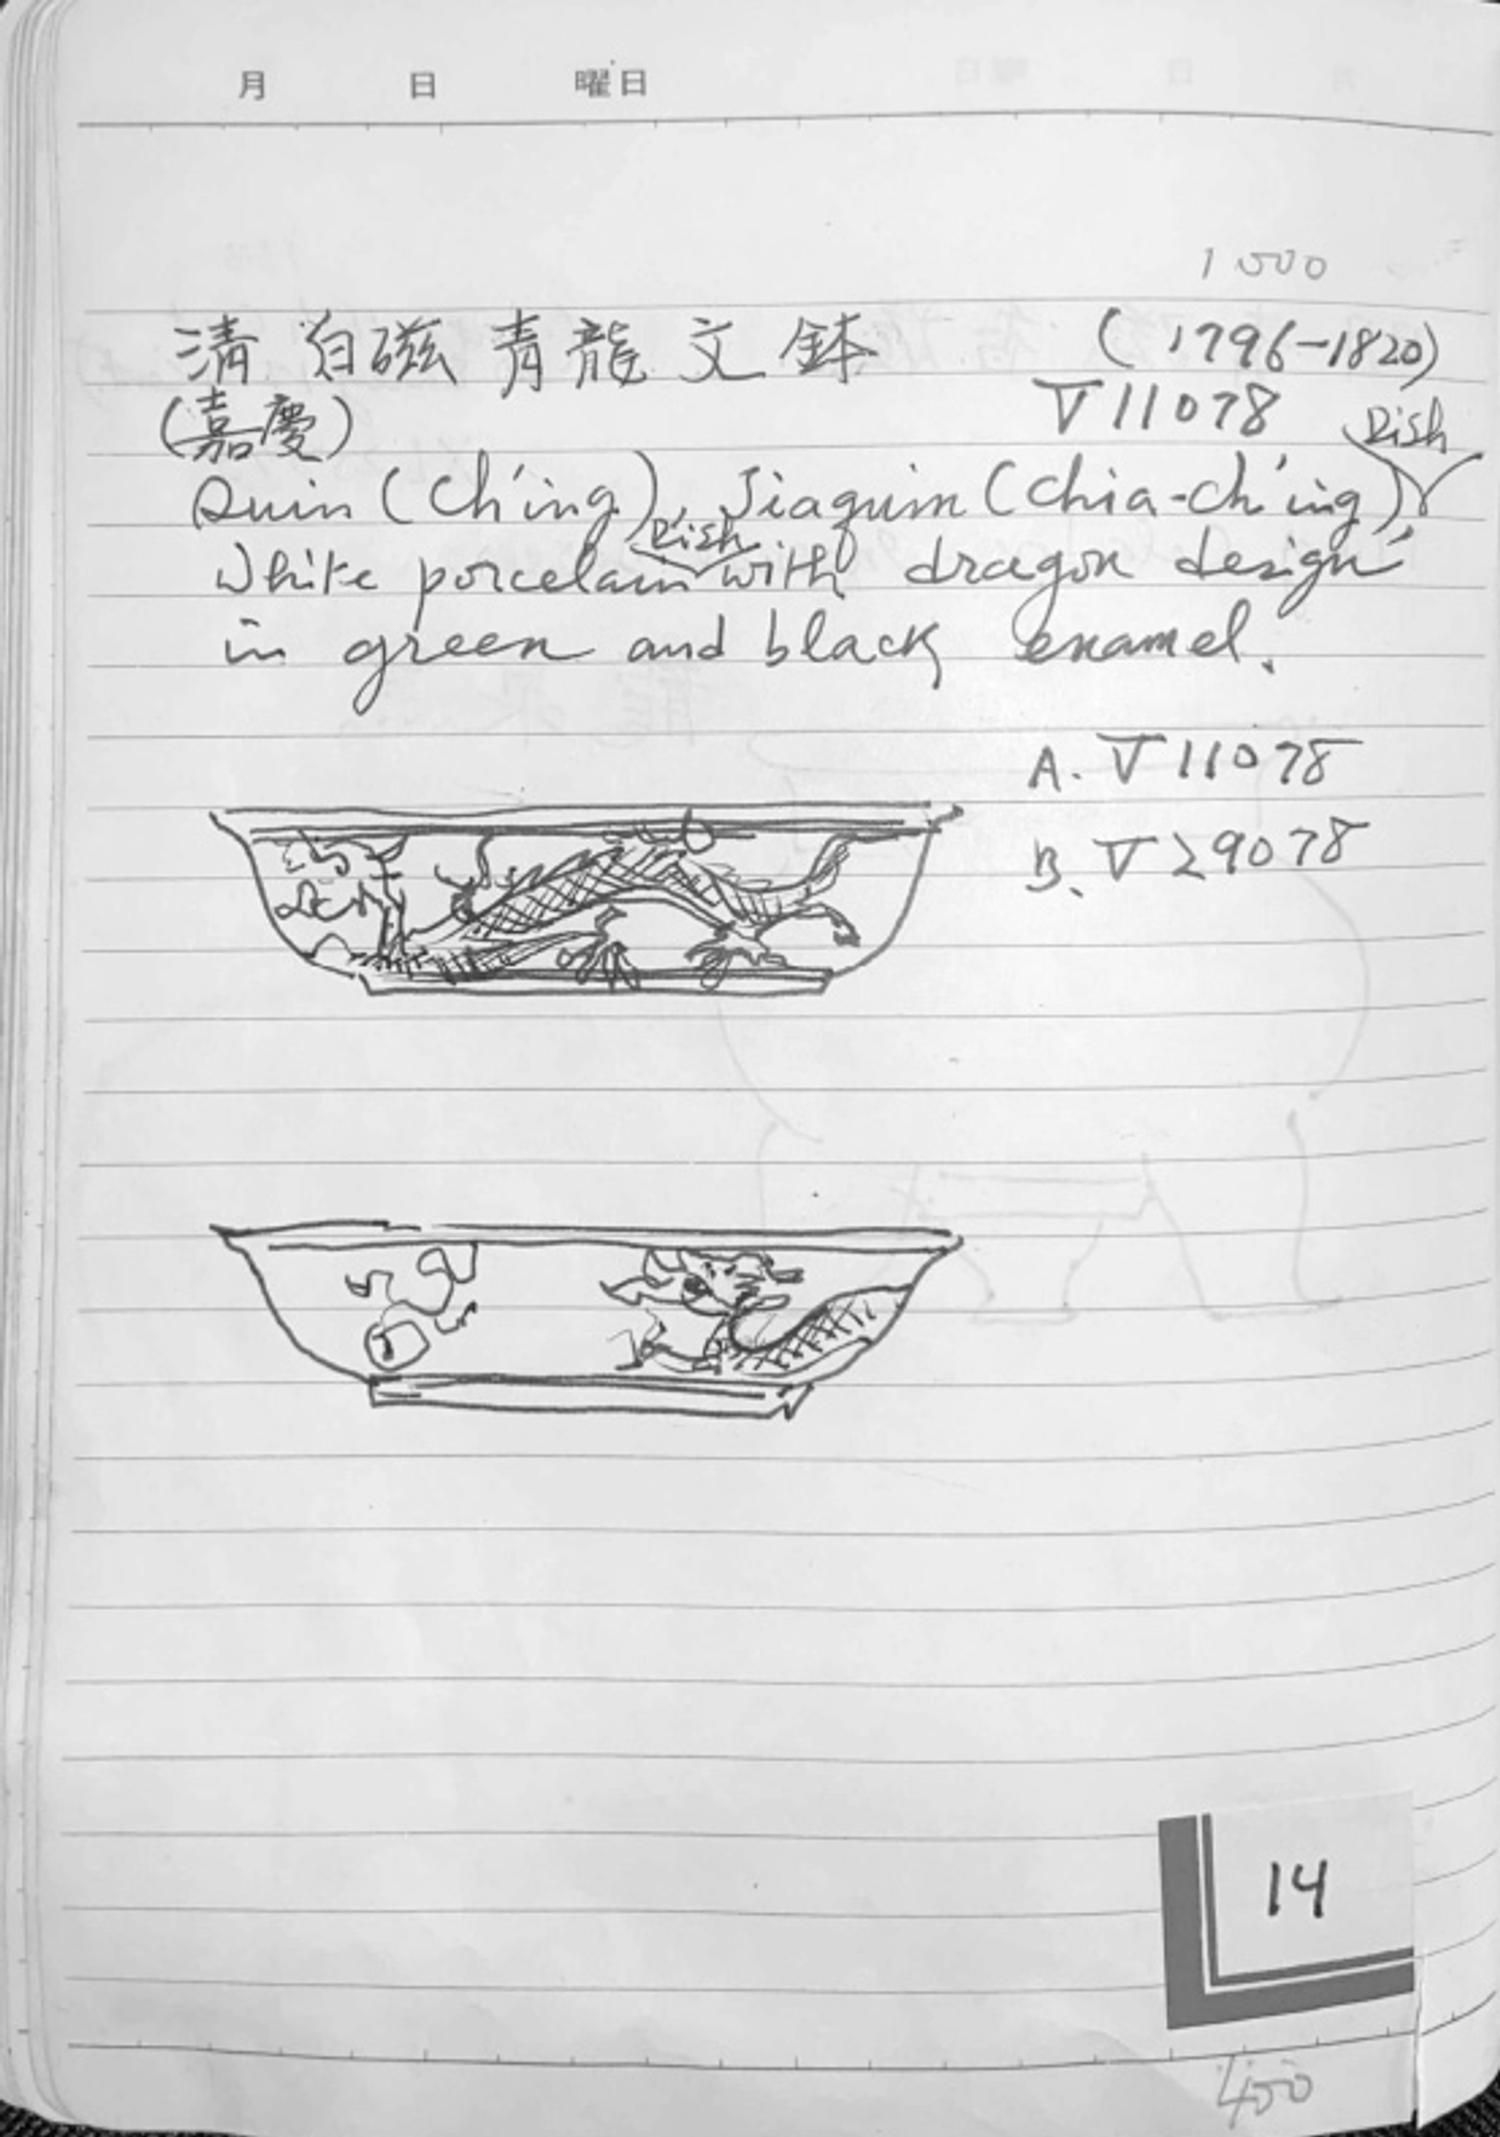 月 日 曜日
1500
清 白磁 青龍 文 鉢 (1796-1820)
(嘉慶) V11078
Dish
Quin (Ch'ing), Jiaquin (Chia-Ch'ing)
Dish
White porcelain with dragon design
in green and black enamel.
A. V11078
B. V29078
14
400